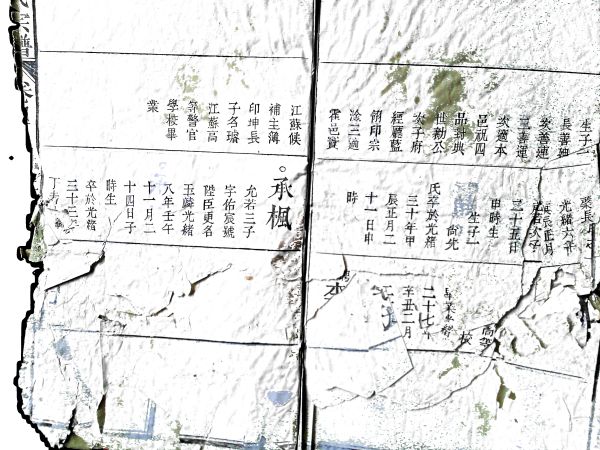 生子一
長善
次善運
三善運
次適本
邑祝四
品封典
世勳公
次子府
經廳藍
翎印宗
淦三適
霍邑竇
光緒六年
正月
次子
二十五日
甲時生
生子一
尚先
氏卒於光緒
三十年甲
辰正月二
十一日申
時
高等
校
二十七
辛丑二月
江蘇候
補主簿
印坤長
子名璿
江蘇高
等警官
學校畢
業
承楓
允若三子
字佑宸號
陛臣更名
玉麟光緒
八年壬午
十一月二
十四日子
時生
卒於光緒
三十二
丁